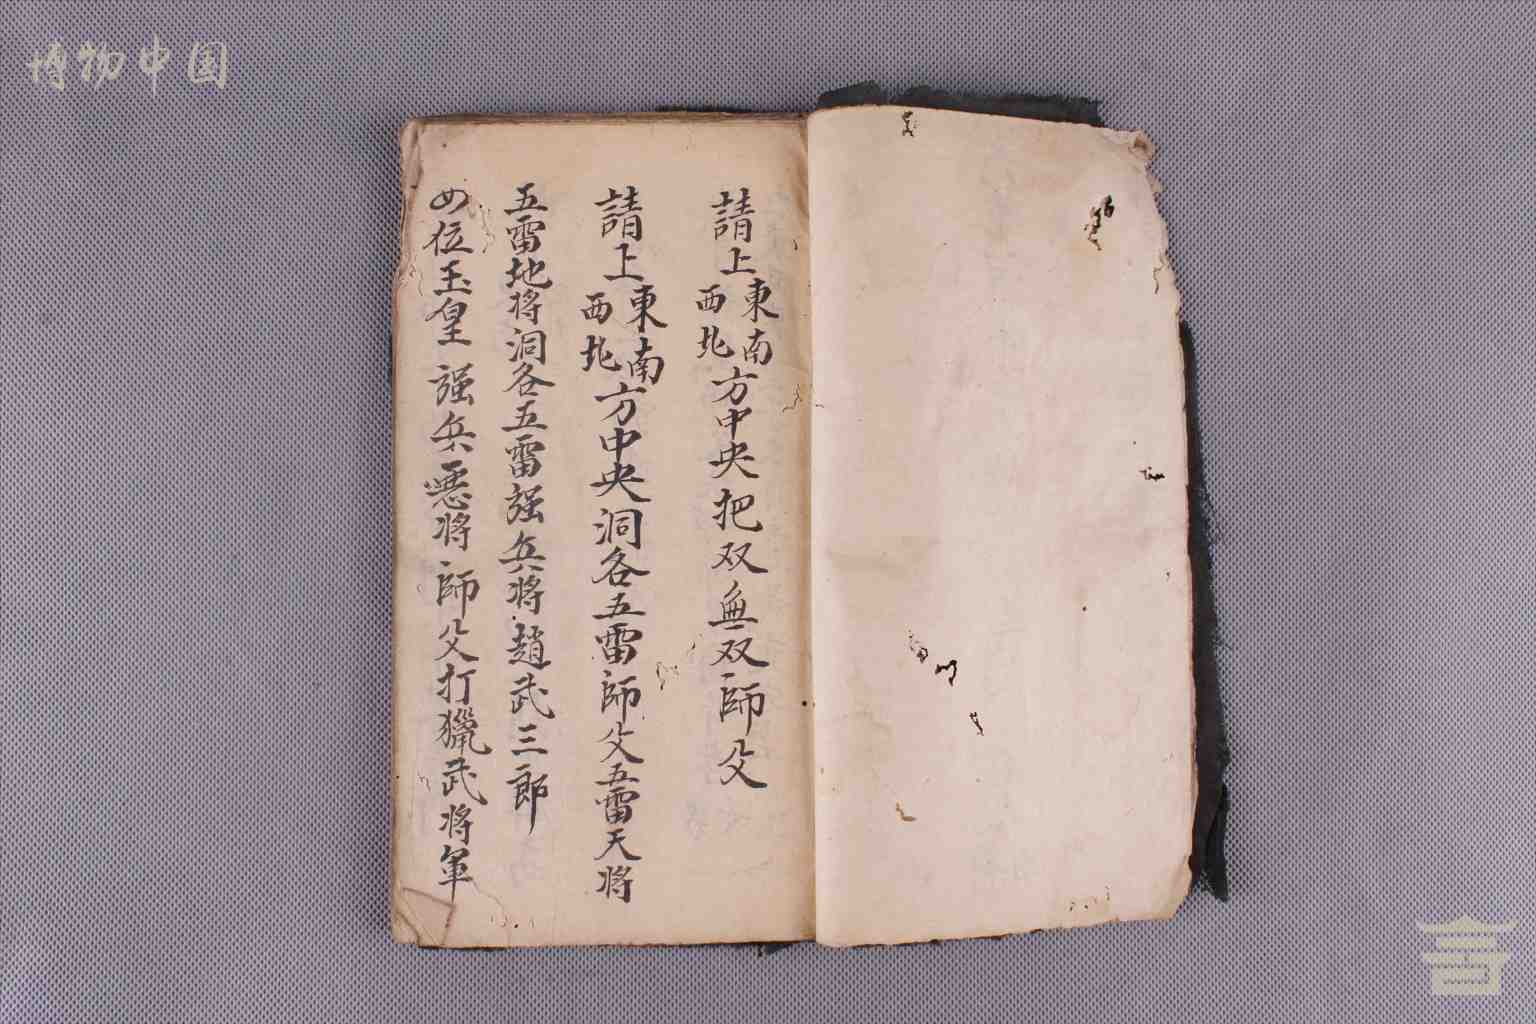 博物中国
請上東南西北方中央把双無双師父
請上東南西北方中央洞各五雷師父五雷天將
五雷地將洞各五雷强兵將趙武三郎
四位玉皇强兵惡將師父打獵武將軍